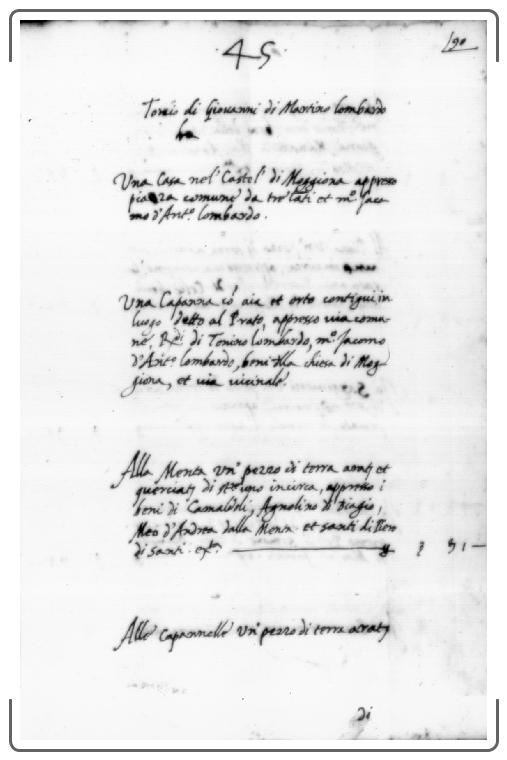 45
190
Tonio di Giovanni di Martino lombardo
ha
Una Casa nel' Castel' di Moggiona appresso
piazza comune da tre lati et mº. Jaco-
mo d'Antº. lombardo.
Una Capanna có aia et orto contigui in
luogo detto al Prato, appresso via comu-
ne, di Tonino lombardo, mº. Jacomo
d'Antº lombardo, beni alla chiesa di Mog-
giona, et via vicinale.
Alla Monta un' pezzo di terra aratª et
querciatª di incirca, appresso i
beni di Camaldoli, Agnolino di Biagio,
Meo d'Andrea dalla Monta et santi di Piero
di santi
Alle Capannelle un' pezzo di terra aratª
di